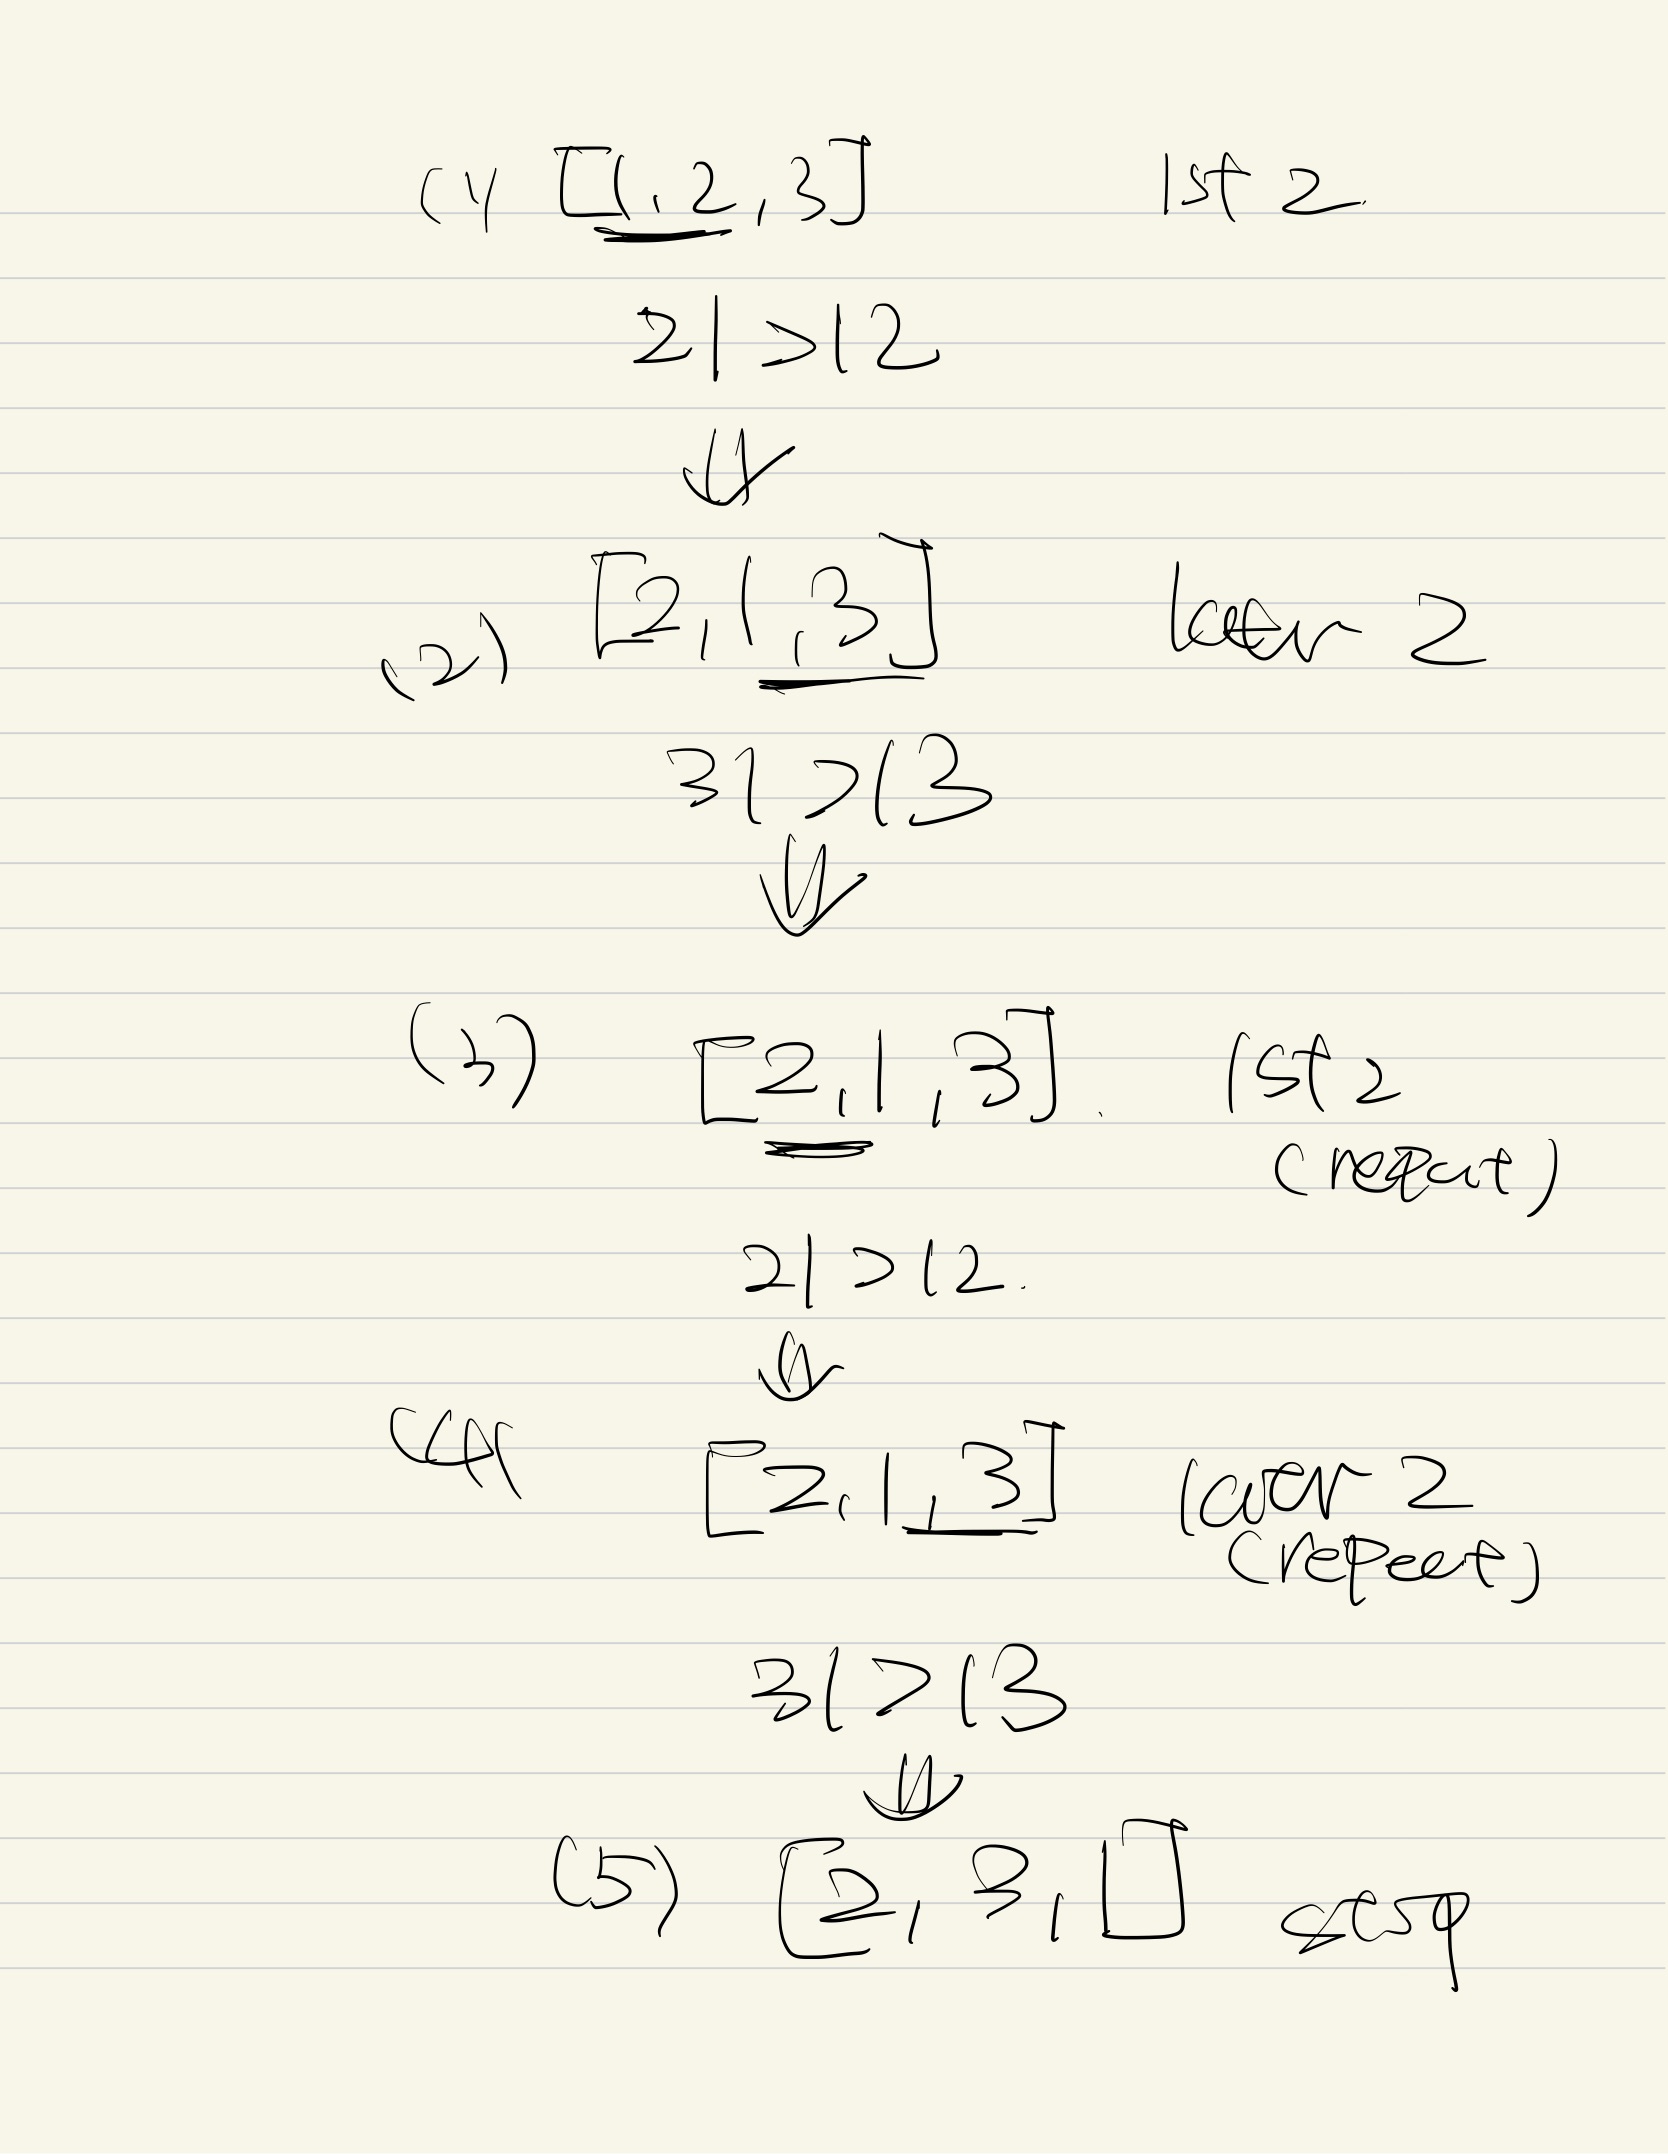 (1) [1, 2, 3] 1st 2
21 > 12
⇓
(2) [2, 1, 3] later 2
31 > 13
⇓
(3) [2, 1, 3] 1st 2
(repeat)
21 > 12
⇓
(4) [2, 1, 3] later 2
(repeat)
31 > 13
⇓
(5) [2, 3, 1] stop